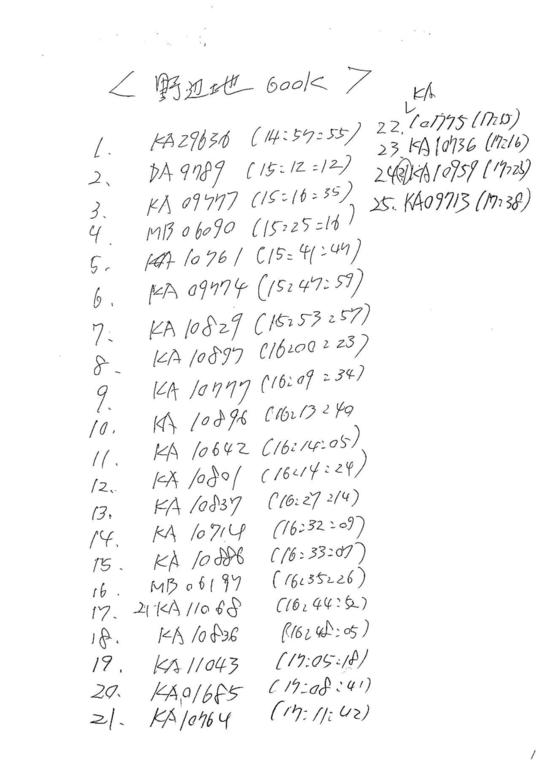 < 野辺地 600K >
1. KA29630 (14:57:55)
2. DA9789 (15:12:12)
3. KA09777 (15:16:35)
4. MB06090 (15:25:16)
5. KA10761 (15:41:47)
6. KA09774 (15:47:59)
7. KA10829 (15:53:57)
8. KA10897 (16:00:23)
9. KA10777 (16:09:34)
10. KA10896 (16:13:40
11. KA10642 (16:14:05)
12. KA10801 (16:14:24)
13. KA10837 (16:27:14)
14. KA10714 (16:32:09)
15. KA10886 (16:33:07)
16. MB06197 (16:35:26)
17. 21KA11068 (16:44:52)
18. KA10836 (16:48:05)
19. KA11043 (17:05:18)
20. KA01685 (17:08:41)
21. KA10764 (17:11:42)
KA
22. 10775 (17:15)
23 KA10736 (17:16)
24 21KA10959 (17:23)
25. KA09713 (17:38)
1